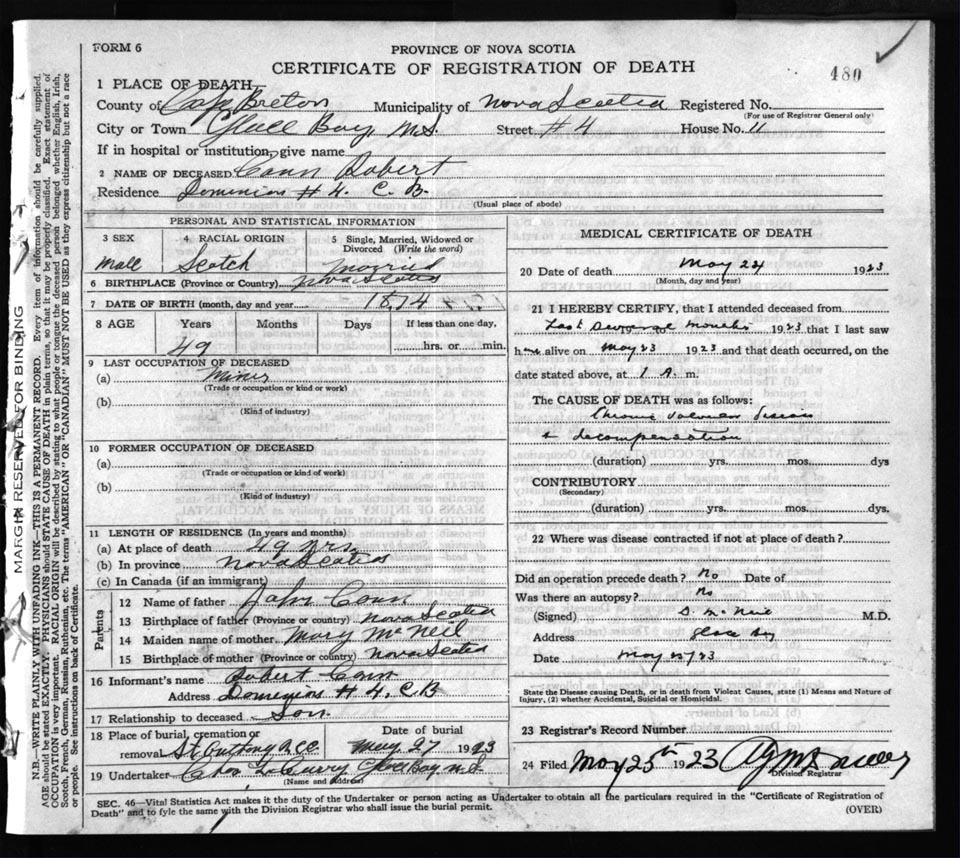 FORM 6
PROVINCE OF NOVA SCOTIA
CERTIFICATE OF REGISTRATION OF DEATH
480
1 PLACE OF DEATH
County of Cape Breton Municipality of Nova Scotia Registered No.
(For use of Registrar General only)
City or Town Glace Bay, N.S. Street #4 House No. 11
If in hospital or institution, give name
2 NAME OF DECEASED Cann Robert
Residence Dominion #4. C.B.
(Usual place of abode)
PERSONAL AND STATISTICAL INFORMATION
3 SEX 4 RACIAL ORIGIN 5 Single, Married, Widowed or Divorced (Write the word)
Male Scotch Married
6 BIRTHPLACE (Province or Country) Nova Scotia
7 DATE OF BIRTH (month, day and year) 1874
8 AGE Years Months Days If less than one day,
49 hrs. or min.
9 LAST OCCUPATION OF DECEASED
(a) Miner
(Trade or occupation or kind or work)
(b)
(Kind of industry)
10 FORMER OCCUPATION OF DECEASED
(a)
(Trade or occupation or kind of work)
(b)
(Kind of industry)
11 LENGTH OF RESIDENCE (In years and months)
(a) At place of death 49 yrs.
(b) In province Nova Scotia
(c) In Canada (if an immigrant)
Parents
12 Name of father John Cann
13 Birthplace of father (Province or country) Nova Scotia
14 Maiden name of mother Mary McNeil
15 Birthplace of mother (Province or country) Nova Scotia
16 Informant's name Robert Cann
Address Dominion #4, C.B
17 Relationship to deceased Son
18 Place of burial, cremation or removal St Anthony Date of burial May 27 1923
19 Undertaker Glace Bay N.S.
(Name and address)
MEDICAL CERTIFICATE OF DEATH
20 Date of death May 24 1923
(Month, day and year)
21 I HEREBY CERTIFY, that I attended deceased from
Last several months 1923 that I last saw
him alive on May 23 1923 and that death occurred, on the
date stated above, at 1 A. m.
The CAUSE OF DEATH was as follows:
Chronic valvular disease
& decompensation
(duration) yrs. mos. dys
CONTRIBUTORY
(Secondary)
(duration) yrs. mos. dys.
22 Where was disease contracted if not at place of death?
Did an operation precede death? No Date of
Was there an autopsy? No
(Signed) McNeil M.D.
Address Glace Bay
Date May /23
State the Disease causing Death, or in death from Violent Causes, state (1) Means and Nature of
Injury, (2) whether Accidental, Suicidal or Homicidal.
23 Registrar's Record Number
24 Filed May 25th 1923
Division Registrar
SEC. 46—Vital Statistics Act makes it the duty of the Undertaker or person acting as Undertaker to obtain all the particulars required in the "Certificate of Registration of
Death" and to fyle the same with the Division Registrar who shall issue the burial permit.
(OVER)
MARGIN RESERVED FOR BINDING
N.B.—WRITE PLAINLY WITH UNFADING INK—THIS IS A PERMANENT RECORD. Every item of information should be carefully supplied.
AGE should be stated EXACTLY. PHYSICIANS should STATE CAUSE OF DEATH in plain terms, so that it may be properly classified. Exact statement of
OCCUPATION is very important. RACIAL ORIGIN will be described by stating to what people or tongue the deceased person belonged whether English, Irish,
Scotch, French, German, Russian, Ruthenian, etc. The terms "AMERICAN" or "CANADIAN" MUST NOT BE USED as they express citizenship but not a race
or people. See instructions on back of Certificate.